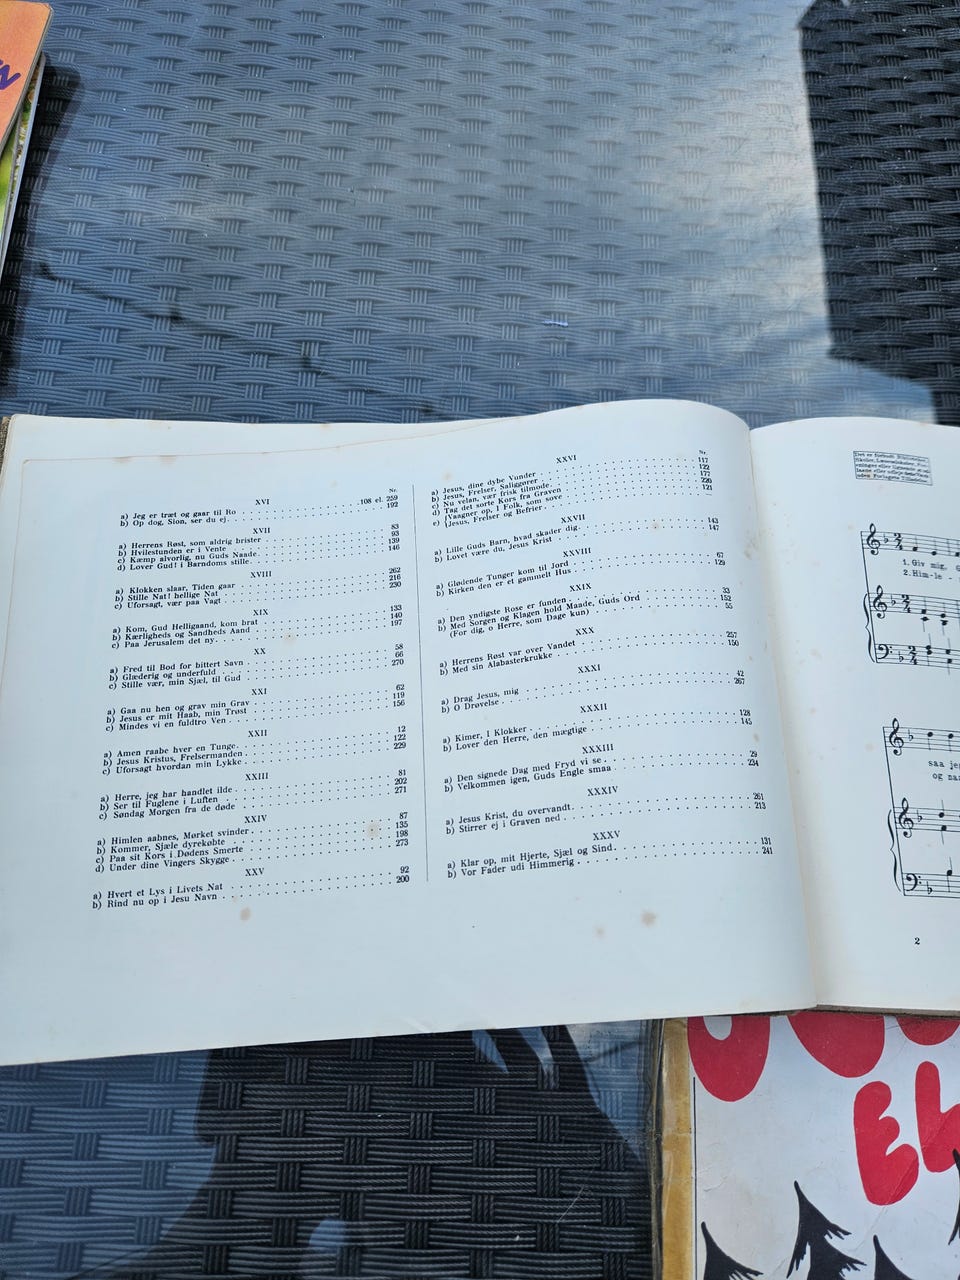 Nr.
XVI
a) Jeg er træt og gaar til Ro . . . 108 el. 259
b) Op dog, Sion, ser du ej . . . 192
XVII
a) Herrens Røst, som aldrig brister . . . 83
b) Hvilestunden er i Vente . . . 93
c) Kæmp alvorlig, nu Guds Naade . . . 139
d) Lover Gud! i Barndoms stille . . . 146
XVIII
a) Klokken slaar, Tiden gaar . . . 262
b) Stille Nat! hellige Nat . . . 216
c) Uforsagt, vær paa Vagt . . . 230
XIX
a) Kom, Gud Helligaand, kom brat . . . 133
b) Kærligheds og Sandheds Aand . . . 140
c) Paa Jerusalem det ny . . . 197
XX
a) Fred til Bod for bittert Savn . . . 58
b) Glæderig og underfuld . . . 66
c) Stille vær, min Sjæl, til Gud . . . 270
XXI
a) Gaa nu hen og grav min Grav . . . 62
b) Jesus er mit Haab, min Trøst . . . 119
c) Mindes vi en fuldtro Ven . . . 156
XXII
a) Amen raabe hver en Tunge . . . 12
b) Jesus Kristus, Frelsermanden . . . 122
c) Uforsagt hvordan min Lykke . . . 229
XXIII
a) Herre, jeg har handlet ilde . . . 81
b) Ser til Fuglene i Luften . . . 202
c) Søndag Morgen fra de døde . . . 271
XXIV
a) Himlen aabnes, Mørket svinder . . . 87
b) Kommer, Sjæle dyrekøbte . . . 135
c) Paa sit Kors i Dødens Smerte . . . 198
d) Under dine Vingers Skygge . . . 273
XXV
a) Hvert et Lys i Livets Nat . . . 92
b) Rind nu op i Jesu Navn . . . 200
Nr.
XXVI
a) Jesus, dine dybe Vunder . . . 117
b) Jesus, Frelser, Saliggører . . . 122
c) Nu velan, vær frisk tilmode . . . 177
d) Tag det sorte Kors fra Graven . . . 220
e) {Vaagner op, I Folk, som sove . . . 121
{Jesus, Frelser og Befrier
XXVII
a) Lille Guds Barn, hvad skader dig . . . 143
b) Lovet være du, Jesus Krist . . . 147
XXVIII
a) Glødende Tunger kom til Jord . . . 67
b) Kirken den er et gammelt Hus . . . 129
XXIX
a) Den yndigste Rose er funden . . . 33
b) Med Sorgen og Klagen hold Maade, Guds Ord . . . 152
(For dig, o Herre, som Dage kun) . . . 55
XXX
a) Herrens Røst var over Vandet . . . 257
b) Med sin Alabasterkrukke . . . 150
XXXI
a) Drag Jesus, mig . . . 42
b) O Drøvelse . . . 267
XXXII
a) Kimer, I Klokker . . . 128
b) Lover den Herre, den mægtige . . . 145
XXXIII
a) Den signede Dag med Fryd vi se . . . 29
b) Velkommen igen, Guds Engle smaa . . . 234
XXXIV
a) Jesus Krist, du overvandt . . . 261
b) Stirrer ej i Graven ned . . . 213
XXXV
a) Klar op, mit Hjerte, Sjæl og Sind . . . 131
b) Vor Fader udi Himmerig . . . 241
Det er forbudt
1. Giv mig,
2. Him-le -
saa
og
2
EL